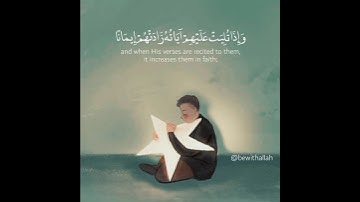 وَإِذَا تُلِيَتْ عَلَيْهِمْ آيَاتُهُ زَادَتْهُمْ إِيمَانًا
and when His verses are recited to them,
it increases them in faith;
@bewithallah